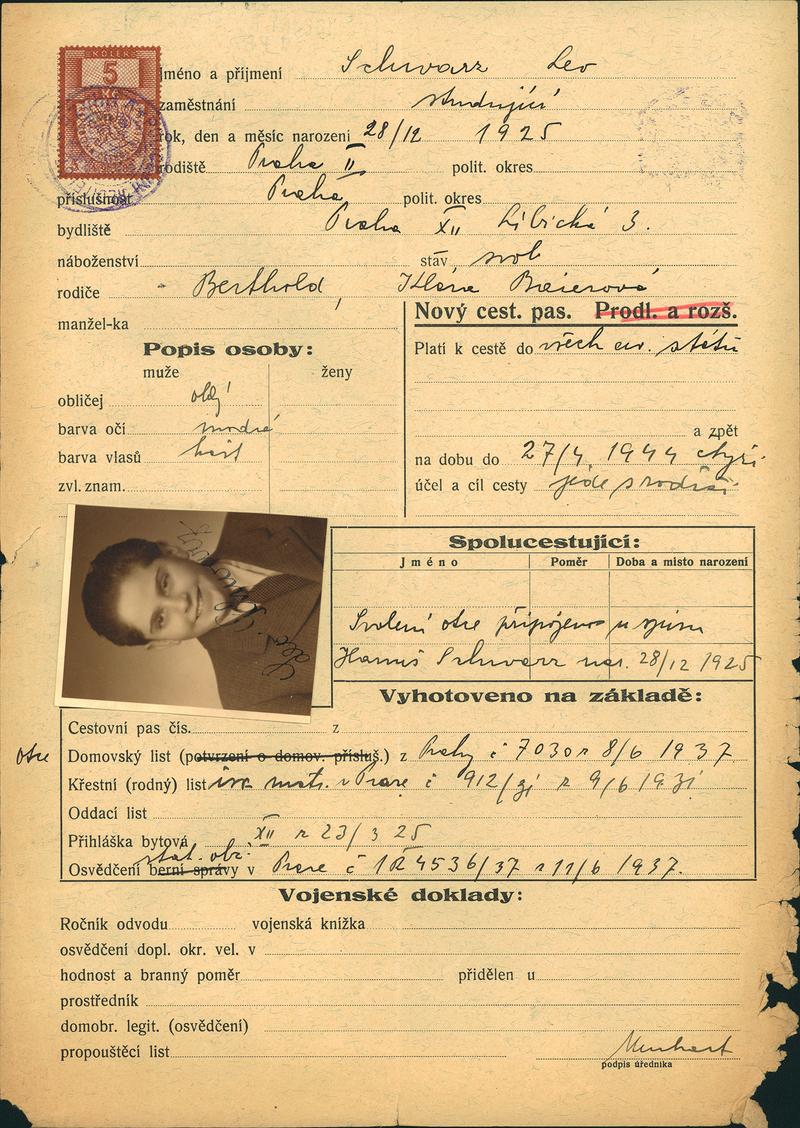 KOLEK
5
Jméno a příjmení Schwarz Lev
zaměstnání studující
rok, den a měsíc narození 28/12 1925
rodiště Praha II polit. okres
příslušnost Praha polit. okres
bydliště Praha XII Libická 3.
náboženství stav svob
rodiče Berthold, Klára Breierová
manžel-ka
Nový cest. pas. Prodl. a rozš.
Platí k cestě do všech ev. států
a zpět
na dobu do 27/4 1944 čtyři
účel a cíl cesty jede s rodiči
Popis osoby:
muže ženy
obličej obl.
barva očí modré
barva vlasů
zvl. znam.
Lev Schwarz
Spolucestující:
Jméno Poměr Doba a místo narození
Svolení otce připojeno u spisu
Hanuš Schwarz nar. 28/12 1925
Vyhotoveno na základě:
Cestovní pas čís. z
otce Domovský list (potvrzení o domov. přísluš.) z Prahy č 7030 z 8/6 1937
Křestní (rodný) list izr. matr. v Praze č 912/ z 9/6
Oddací list
Přihláška bytová XII z 23/3 25
stát. obč.
Osvědčení berní správy v Praze č 4536/37 z 11/6 1937.
Vojenské doklady:
Ročník odvodu vojenská knížka
osvědčení dopl. okr. vel. v
hodnost a branný poměr přidělen u
prostředník
domobr. legit. (osvědčení)
propouštěcí list
podpis úředníka